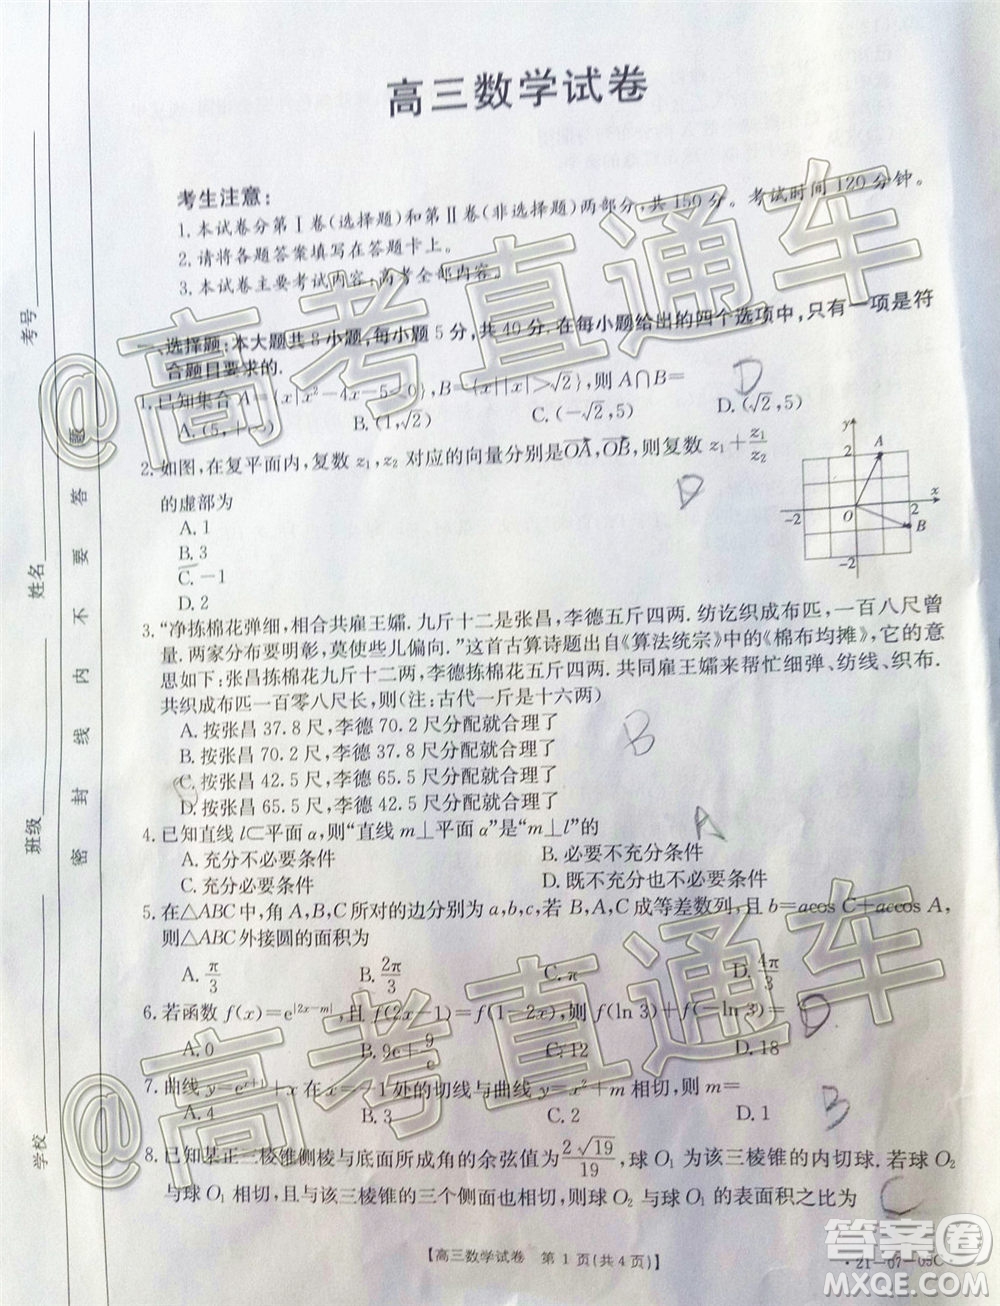 高三数学试卷
考生注意:
1.本试卷分第Ⅰ卷(选择题)和第Ⅱ卷(非选择题)两部分,共150分。考试时间120分钟。
2.请将各题答案填写在答题卡上。
3.本试卷主要考试内容:高考全部内容。
一、选择题:本大题共8小题,每小题5分,共40分.在每小题给出的四个选项中,只有一项是符
合题目要求的.
1.已知集合A={x|x²-4x-5<0},B={x||x|>√2},则A∩B=
D
A.(5,+∞) B.(1,√2) C.(-√2,5) D.(√2,5)
2.如图,在复平面内,复数z₁,z₂对应的向量分别是OA,OB,则复数z₁+z₁/z₂
的虚部为
D
A.1
B.3
C.-1
D.2
y
A
2
x
-2
O
2
B
-2
3.“净拣棉花弹细,相共雇王孀.九斤十二是张昌,李德五斤四两.纺讫织成布匹,一百八尺曾
量.两家分布要明彰,莫使些儿偏向.”这首古算诗题出自《算法统宗》中的《棉布均摊》,它的意
思如下:张昌拣棉花九斤十二两,李德拣棉花五斤四两.共同雇王孀来帮忙细弹、纺线、织布.
共织成布匹一百零八尺长,则(注:古代一斤是十六两)
A.按张昌37.8尺,李德70.2尺分配就合理了
B.按张昌70.2尺,李德37.8尺分配就合理了
C.按张昌42.5尺,李德65.5尺分配就合理了
D.按张昌65.5尺,李德42.5尺分配就合理了
B
4.已知直线l⊂平面α,则“直线m⊥平面α”是“m⊥l”的
A
A.充分不必要条件 B.必要不充分条件
C.充分必要条件 D.既不充分也不必要条件
5.在△ABC中,角A,B,C所对的边分别为a,b,c,若B,A,C成等差数列,且b=acos C+ccos A,
则△ABC外接圆的面积为
A.π/3 B.2π/3 C.π D.4π/3
6.若函数f(x)=e^|2x-m|,且f(2x-1)=f(1-2x),则f(ln 3)+f(-ln 3)=
D
A.0 B.9e+9/e C.12 D.18
7.曲线y=e^(x+1)+x在x=-1处的切线与曲线y=x²+m相切,则m=
A.4 B.3 C.2 D.1
B
8.已知某正三棱锥侧棱与底面所成角的余弦值为2√19/19,球O₁为该三棱锥的内切球.若球O₂
与球O₁相切,且与该三棱锥的三个侧面也相切,则球O₂与球O₁的表面积之比为
C
【高三数学试卷 第1页(共4页)】
·21-07-05C·
考号
姓名
班级
学校
密封线内不要答题
@高考直通车
@高考直通车
答案圈
MXQE.COM